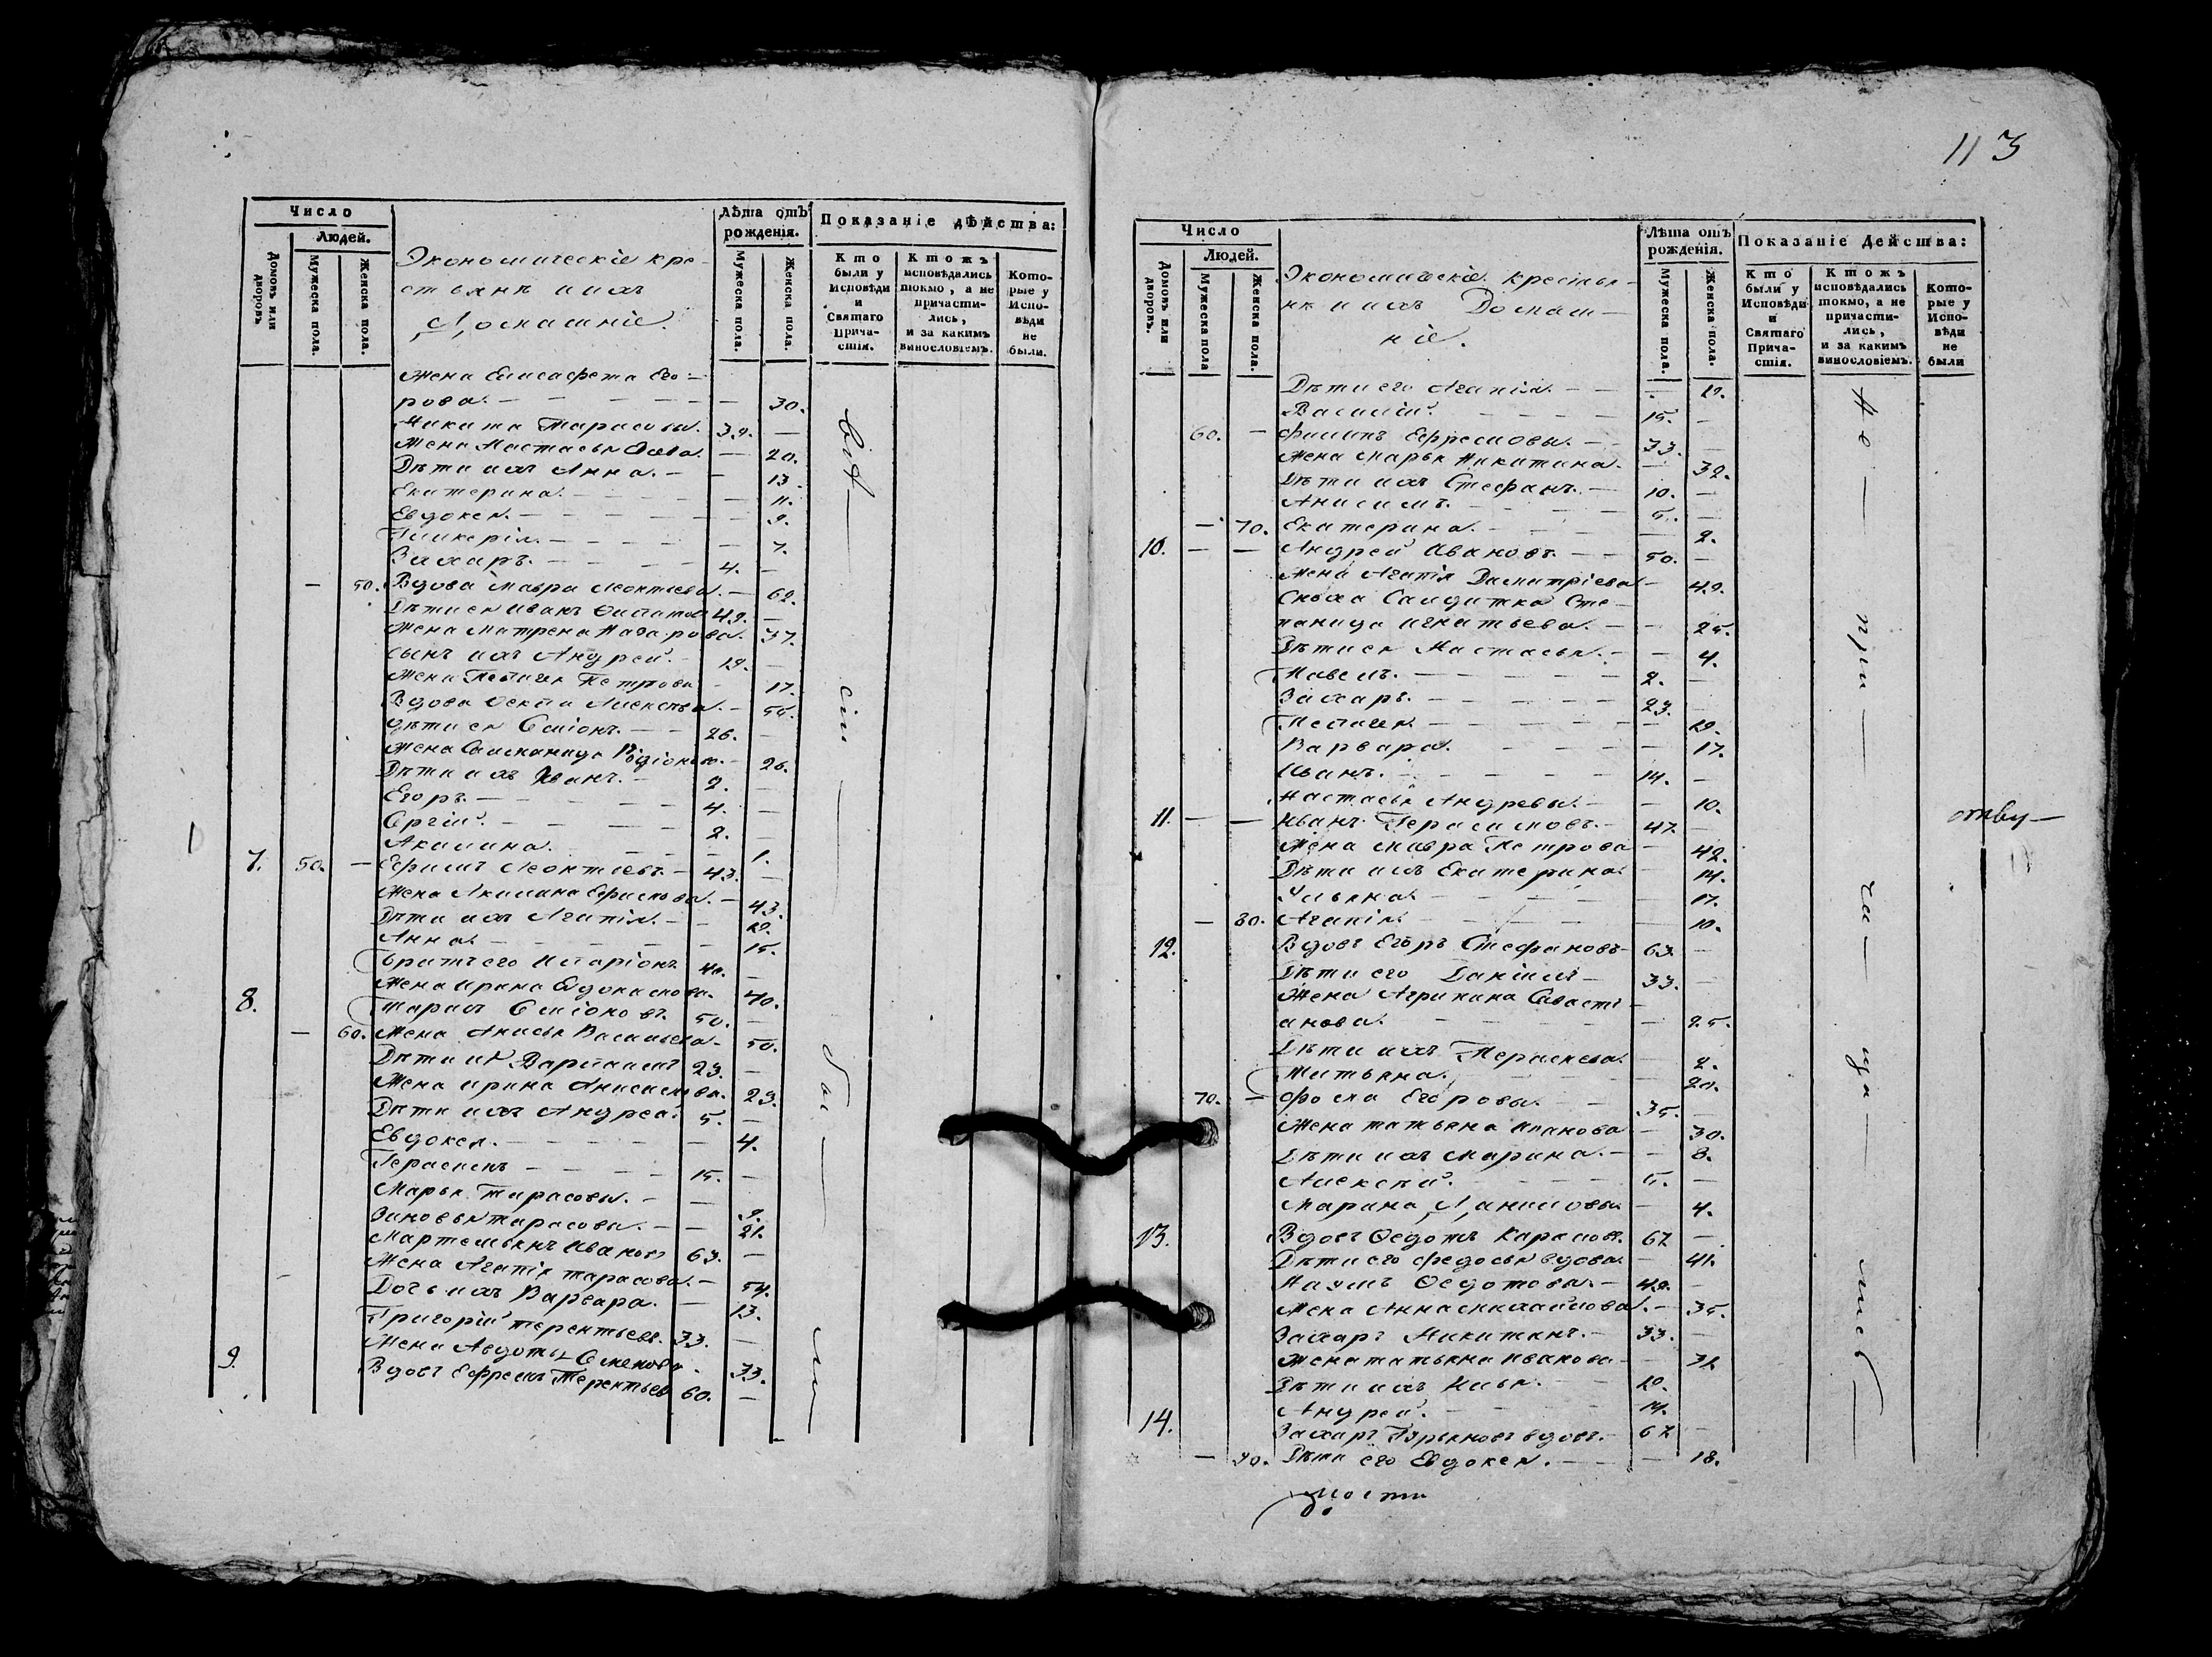 113
Число
Людей.
Домовъ или дворовъ.
Мужеска пола.
Женска пола.
Экономическіе кре-
стьянъ и ихъ
Домашніе.
Лѣта отъ рожденія.
Мужеска пола.
Женска пола.
Показаніе дѣйства:
Кто были у Исповѣди и Святаго Прича-стія.
Ктожъ исповѣдались токмо, а не причасти-лись, и за какимъ винословіемъ.
Кото-рые у Испо-вѣди не были.
Жена Елисафета Его-
рова. — 30.
Никита Тарасовъ. 39. —
Жена Настасья — 20.
Дѣти ихъ Анна. — 13.
Екатерина. — 11.
Евдокея. — 9.
Гликерія. — 7.
Захаръ. 4. —
— 50. Вдова Мавра Леонтьева. — 62.
Дѣти ея Иванъ 49. —
Жена Матрена Назарова. 37.
сынъ ихъ Андрей. 19. —
Жена Пелагея Петрова 17.
Вдова Алексѣва. — 55.
дѣти ея Симіонъ. — 26. —
Жена Родіонова. — 26.
Дѣти ихъ Иванъ. — 9. —
Егоръ. — 4. —
Сргій. — 2. —
Акилина. — 1.
7. 50. — Ефимъ Леонтьевъ. — 43. —
Жена Акилина Ефимова. — 43.
Дѣти ихъ Агапія. — 19.
Анна. — 15.
братъ его Иларіонъ 40. —
Жена Ирина Евдокимова. 40.
8. Тарасъ Симіоновъ. 50. —
— 60. Жена Анисья Васильева. 50.
Дѣти ихъ Варлаамъ 23. —
Жена Ирина Анисимова. 23.
Дѣти ихъ Андрей. 5. —
Евдокея. — 4.
Герасимъ — 15. —
Марья Тарасовы. — 9.
Зиновья Тарасова. — 21.
Мартемьянъ Ивановъ 63. —
Жена Агапія Тарасова. — 54.
Дочь ихъ Варвара. — 13.
Григорій Терентьевъ. 33. —
Жена Авдотья Семенова 33.
9. Вдовъ Ефремъ Терентьевъ 60. —
всѣ — сіи — бы — ли
Число
Людей.
Домовъ или дворовъ.
Мужеска пола
Женска пола.
Экономическіе крестья-
нъ и ихъ Домаш-
ніе.
Лѣта отъ рожденія.
Мужеска пола.
Женска пола.
Показаніе Дейсшва:
Кто были у Исповѣди и Святаго Прича-стія.
Ктожъ исповѣдались токмо, а не причасти-лись, и за какимъ винословіемъ.
Кото-рые у Испо-вѣди не были
Дѣти его Агапія. — 19.
Василій. — 15. —
60. — Филипъ Ефремовы. — 33. —
Жена Марья Никитина. — 32.
Дѣти ихъ Стефанъ. — 10. —
Анисимъ. — 5. —
— 70. Екатерина. — 2.
10. — — Андрей Ивановъ. — 50. —
Жена Агапія Димитріева — 49.
Сноха Салдатка Сте-
панида Игнатьева. — 25.
Дѣти ея Настасья. — 4.
Павелъ. — 2. —
Захаръ. — 23. —
Пелагея. — 19.
Варвара. — 17.
Иванъ. — 14. —
Настасья Андревы. — 10.
11. — — Иванъ Герасимовъ. — 47. —
Жена Мавра Петрова — 42.
Дѣти ихъ Екатерина. — 14.
Ульяна. — 17.
— 80. Агапія. — 10.
12. Вдовъ Егоръ Стефановъ — 63. —
Дѣти его Даніилъ — 33. —
Жена Агрипина Савасті-
анова. — 25.
Дѣти ихъ — 2.
Татьяна. — 20.
70. — Фрола Егоровы. — 35. —
Жена Татьяна — 30.
Дѣти ихъ Марина. — 8.
Алексѣй. — 5. —
Марина Даниловы — 4.
13. Вдовъ Федотъ Карповъ. 67 —
Дѣти его Федосья вдова. — 41.
Наумъ Федотовы. — 49. —
Жена Анна Михайлова. — 35.
Захаръ Никитинъ. — 33. —
Жена Татьяна Иванова — 31.
Дѣти ихъ Илья. — 19.
Андрей. — 14.
14. Захаръ вдовъ. — 67 —
— 90. Дѣти его Евдокея. — 18.
Не — при — ча — ща — лисъ
отву—
до